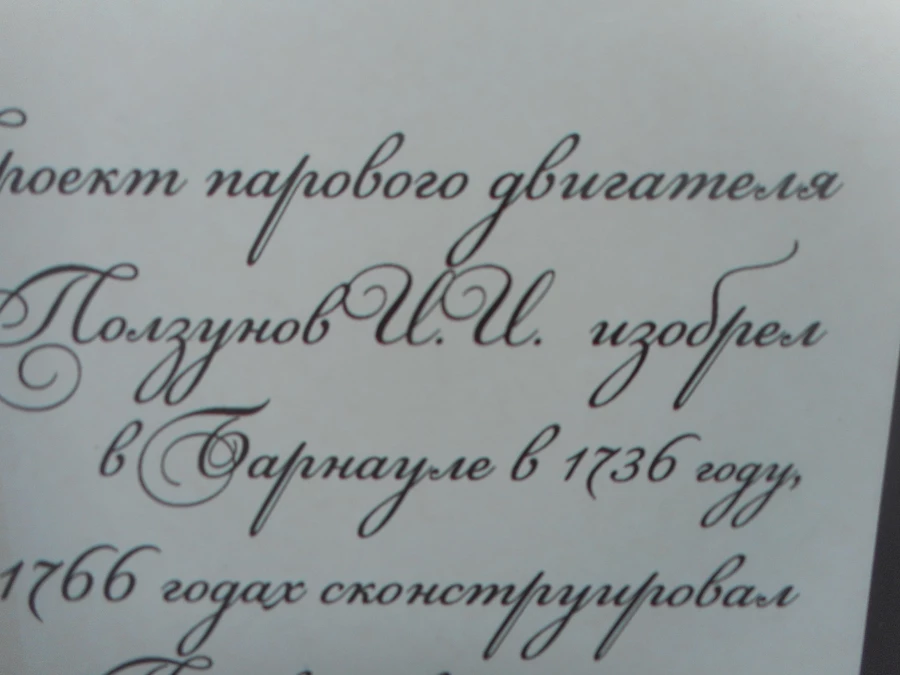 Проект парового двигателя
Ползунов И.И. изобрел
в Барнауле в 1736 году,
1766 годах сконструировал